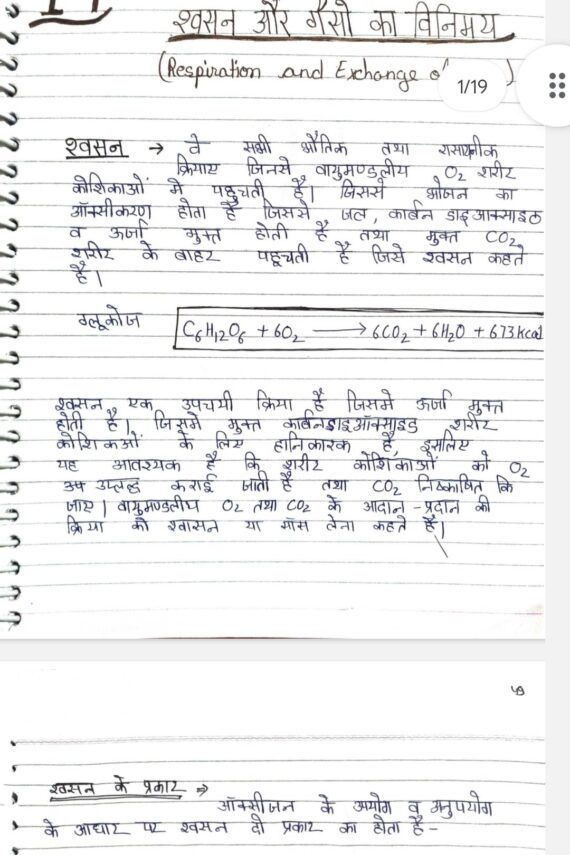 श्वसन और गैसो का विनिमय
(Respiration and Exchange of )
1/19
श्वसन → वे सभी भौतिक तथा रासायनीक
क्रियाए जिनसे वायुमण्डलीय O₂ शरीर
कोशिकाओं मे पहुचती है। जिससे भोजन का
ऑक्सीकरण होता है जिससे जल, कार्बन डाइआक्साइठ
व ऊर्जा मुक्त होती है तथा मुक्त CO₂
शरीर के बाहर पहूचती है जिसे श्वसन कहते
है।
ग्लूकोज C₆H₁₂O₆ + 6O₂ ⟶ 6CO₂ + 6H₂O + 673 Kcal
श्वसन एक उपचयी क्रिया है जिसमे ऊर्जा मुक्त
होती है। जिसमे मुक्त कार्बनडाइऑक्साइड शरीर
कोशिकओं के लिए हानिकारक है, इसलिए
यह आवश्यक है कि शरीर कोशिकाओं को O₂
उप्लब्ध कराई जाती है तथा CO₂ निष्काषित कि
जाए। वायुमण्डलीय O₂ तथा CO₂ के आदान-प्रदान की
क्रिया को श्वासन या साँस लेना कहते है।
श्वसन के प्रकार ⇒
ऑक्सीजन के अयोग व अनुपयोग
के आधार पर श्वसन दो प्रकार का होता है-